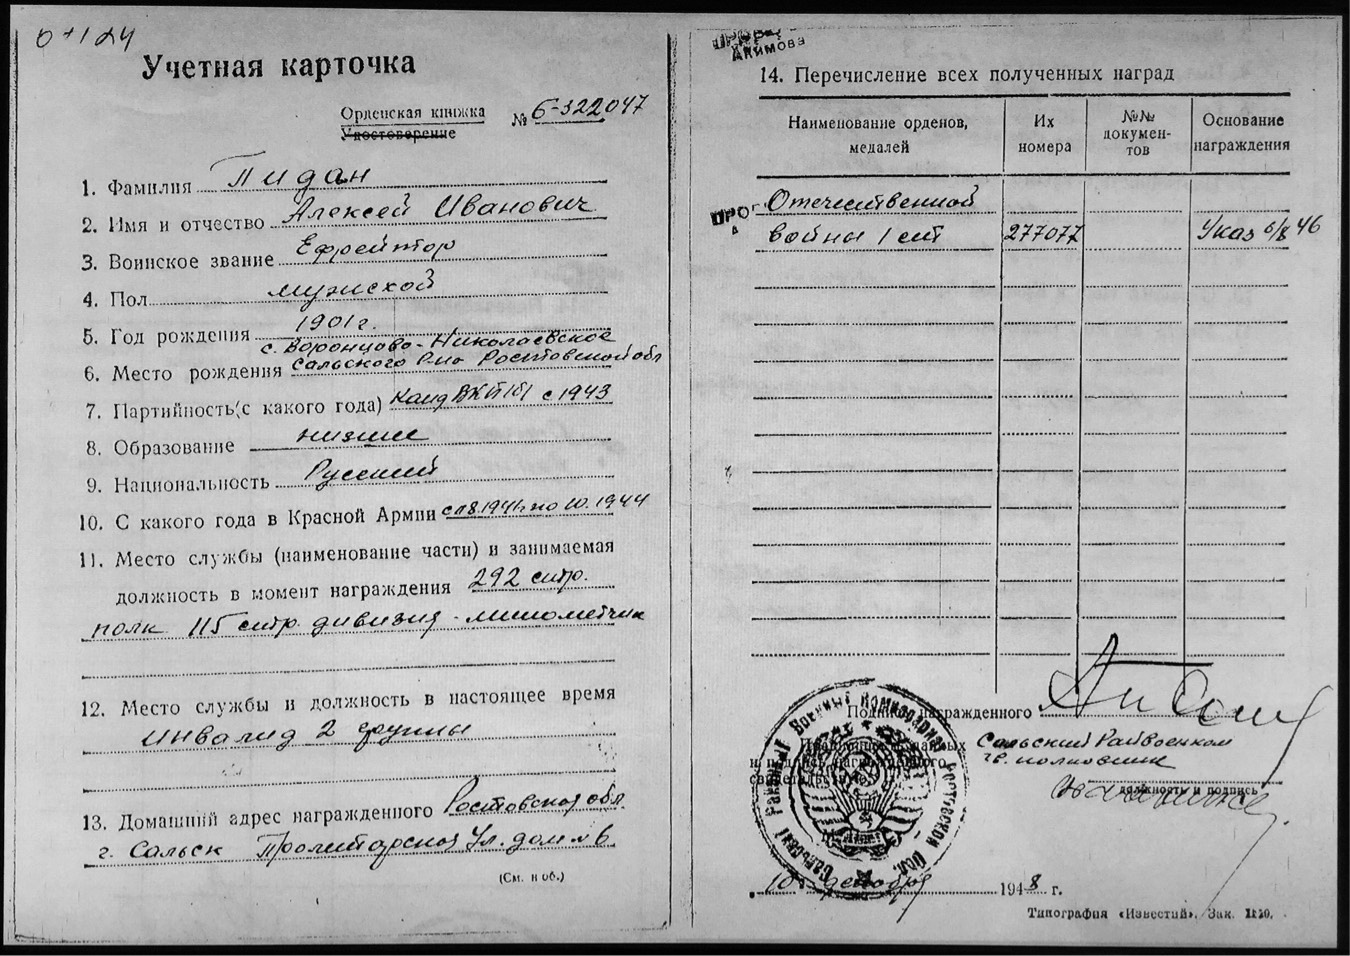 Учетная карточка
Орденская книжка № Б-322047
Удостоверение
1. Фамилия Пидан
2. Имя и отчество Алексей Иванович
3. Воинское звание Ефрейтор
4. Пол мужской
5. Год рождения 1901 г.
с. Воронцово-Николаевское
6. Место рождения Сальского р-на Ростовской обл
7. Партийность (с какого года) Канд ВКП(б) с 1943
8. Образование низшее
9. Национальность Русский
10. С какого года в Красной Армии 1941 по 10.1944
11. Место службы (наименование части) и занимаемая
должность в момент награждения 292 стр.
полк 115 стр. дивизия - минометчик
12. Место службы и должность в настоящее время
инвалид 2 группы
13. Домашний адрес награжденного Ростовская обл
г. Сальск Пролетарская ул. дом № 6
(См. н об.)
Акимова
14. Перечисление всех полученных наград
Наименование орденов, медалей
Их номера
№№ документов
Основание награждения
Отечественной
войны 1 ст 277077 Указ 6/8 46
Подпись награжденного
Сальский Райвоенком
гв. полковник
должность и подпись
10 декабря 1948 г.
Типография «Известий». Зак.